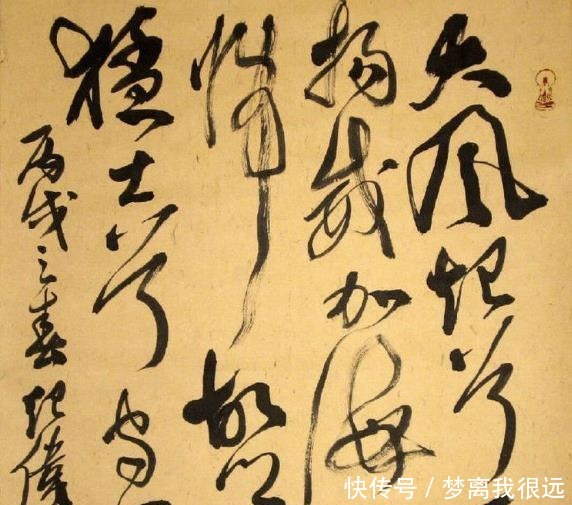 大風起兮
揚威加海
歸故
猛士兮守
丙戌之春
快传号 / 梦离我很远